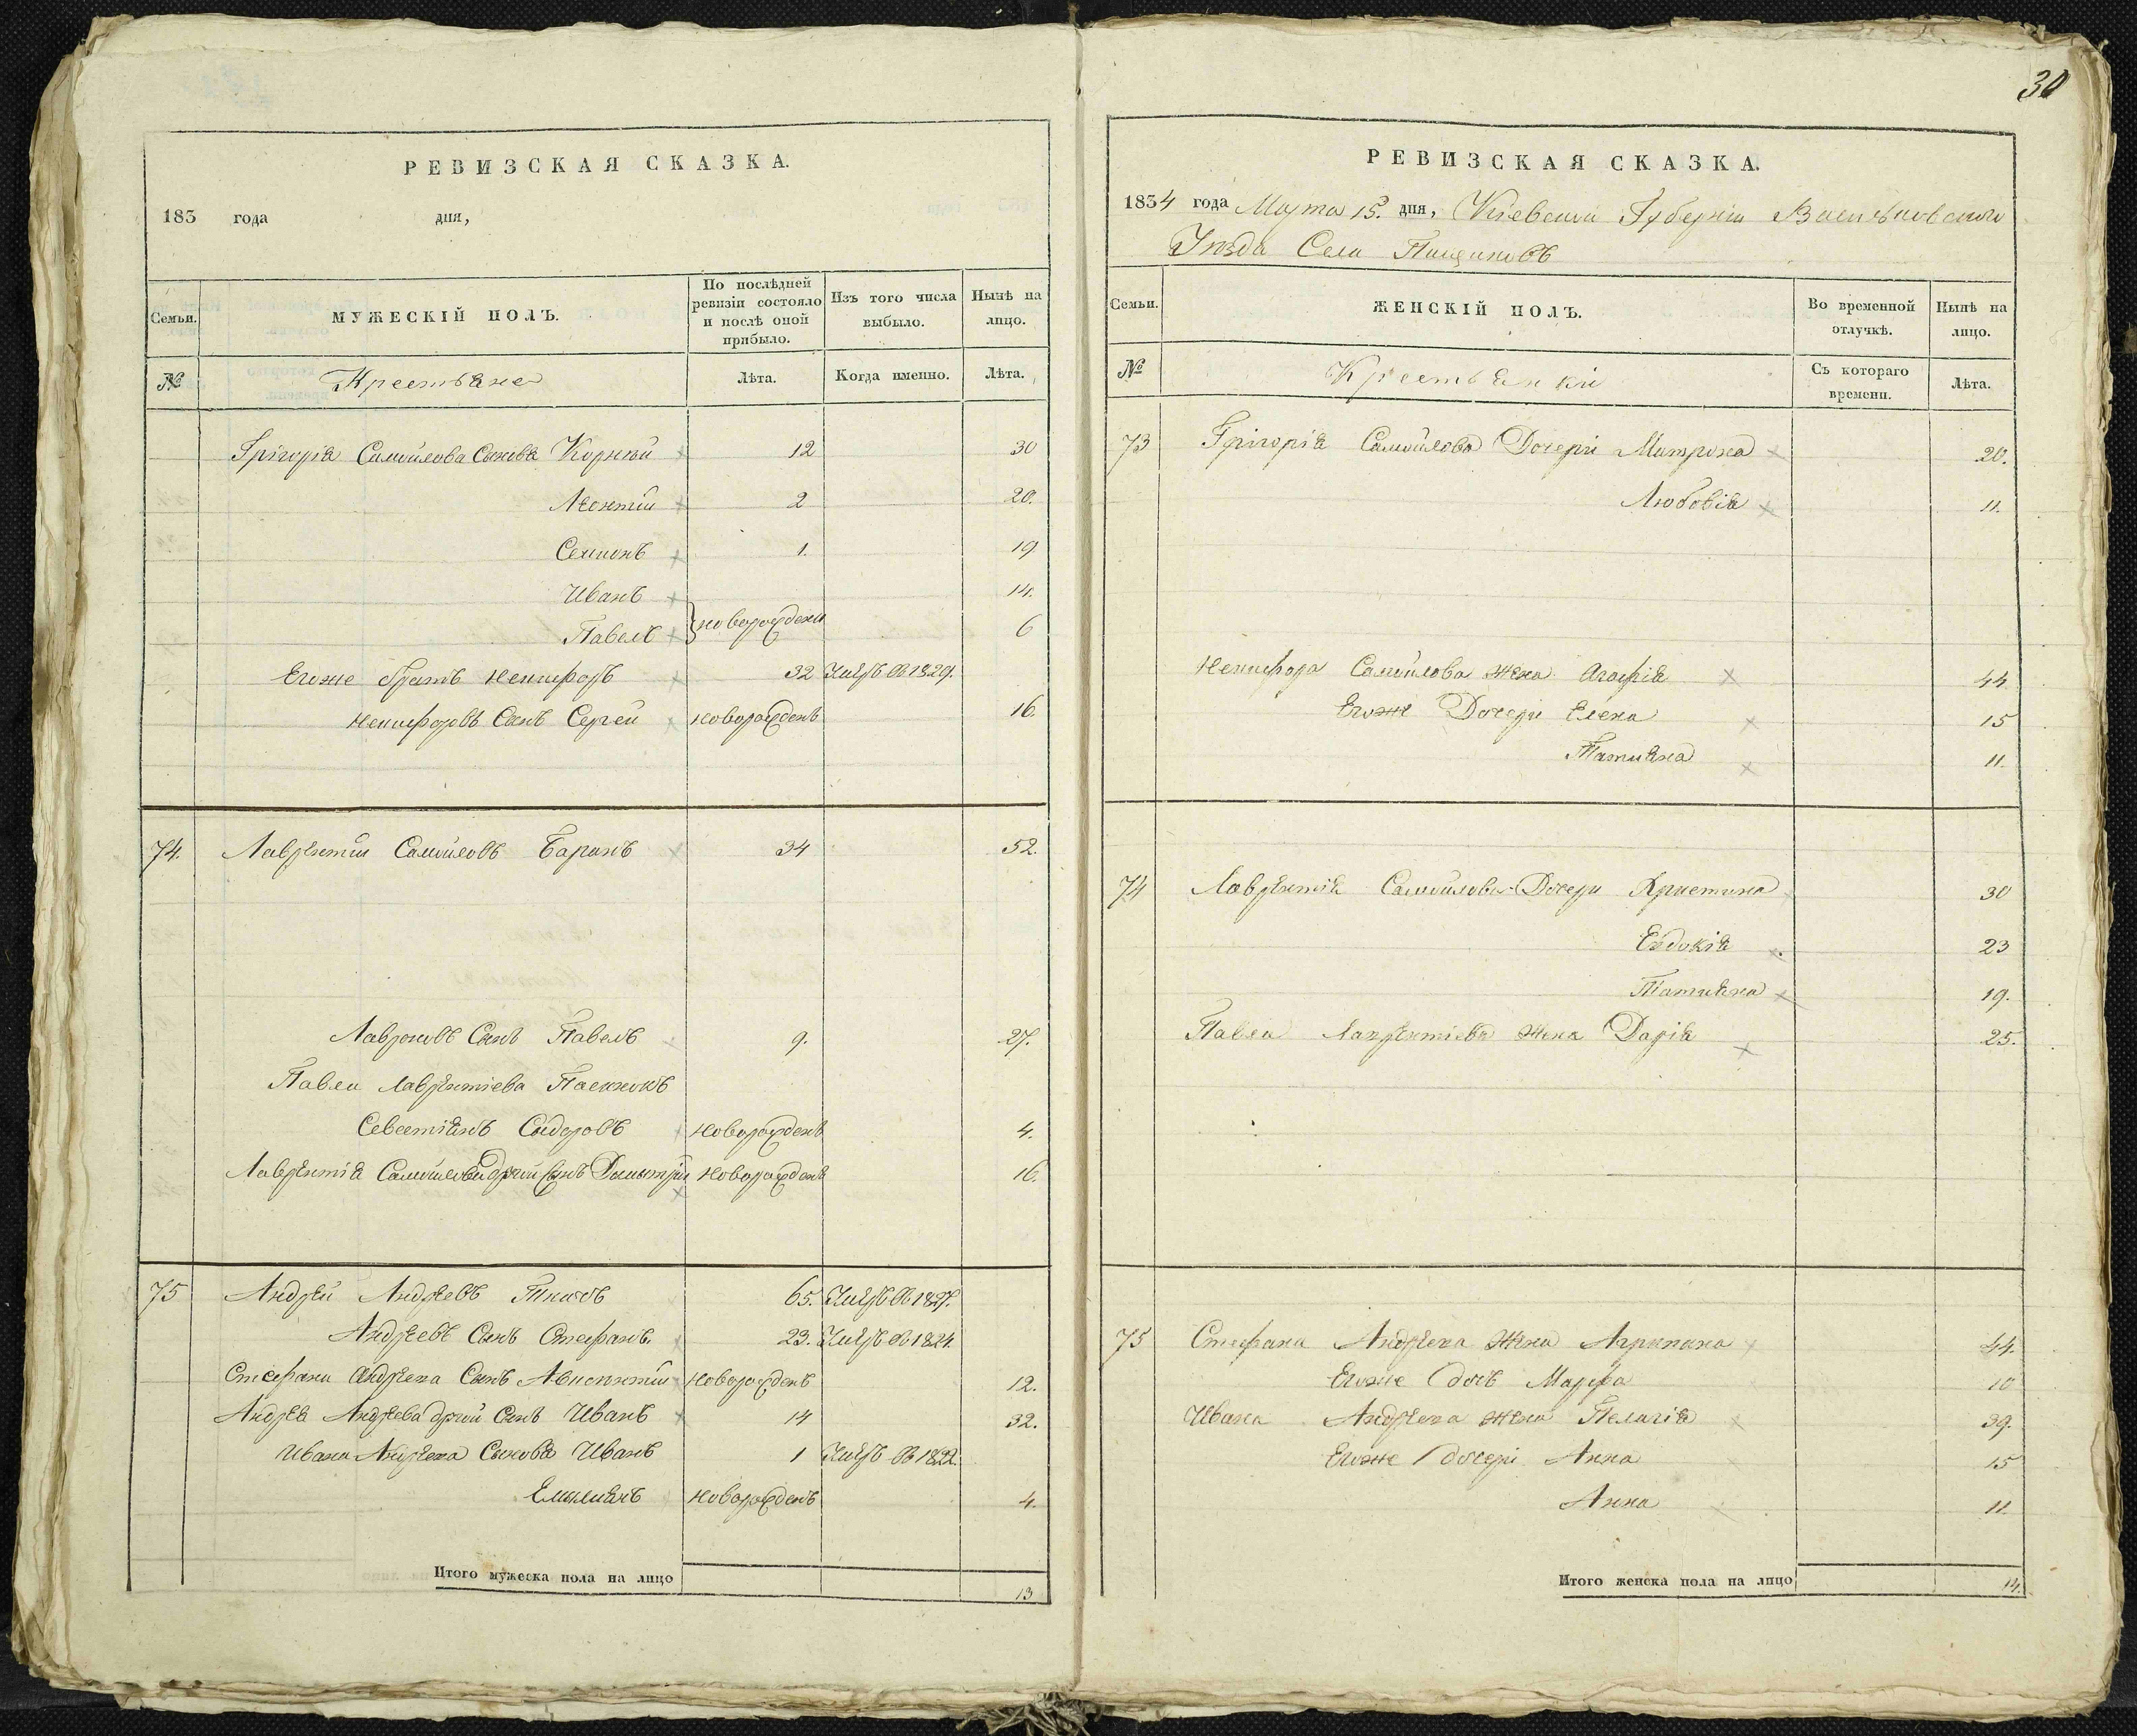 РЕВИЗСКАЯ СКАЗКА.
183 года дня,
Семьи.
МУЖЕСКІЙ ПОЛЪ.
По послѣдней ревизіи состояло и послѣ оной прибыло.
Изъ того числа выбыло.
Нынѣ на лицо.
№
Крестьяне
Лѣта.
Когда именно.
Лѣта.
Григорія Самойлова Сыновя Корнѣй 12 30
Леонтій 2 20.
Семионъ 1. 19
Иванъ 14.
Павелъ } новорождени 6
Егоже братъ Никифоръ 32 Умеръ въ 1829.
Никифоровъ Сынъ Сергей новорожденъ 16.
74. Лаврентій Самойловъ Баранъ 34 52.
Лавроновъ Сынъ Павелъ 9. 27.
Павла Лаврентіева Пасынокъ
Севестіянъ Сыдоровъ новорожденъ 4.
Лаврентія Самойлова другій Сынъ Дмытрій новорожденъ 16.
75 Андрей Андреевъ Ткачъ 65. Умеръ въ 1827.
Андреевъ Сынъ Стефанъ 23. Умеръ въ 1824.
Стефана Андреева Сынъ Авксентій новорожденъ 12.
Андрея Андреева другій Сынъ Иванъ 14 32.
Ивана Андреева Сыновя Иванъ 1 Умеръ въ 1822.
Емилианъ новорожденъ 4.
Итого мужеска пола на лицо 13
30
РЕВИЗСКАЯ СКАЗКА.
1834 года Марта 15. дня, Кіевской Губерніи Васильковского
Уезда Села Пищиковъ
Семьи.
ЖЕНСКІЙ ПОЛЪ.
Во временной отлучкѣ.
Нынѣ на лицо.
№
Крестьянки
Съ котораго времени.
Лѣта.
73 Григорія Самойлова Дочери Матрона 20.
Любовія 11.
Никифора Самойлова жена Агафія 44
Егоже Дочери Елена 15
Татияна 11.
74 Лаврентія Самойлова Дочери Христина 30
Евдокія 23
Татияна 19.
Павла Лаврентіева жена Дарія 25.
75 Стефана Андреева жена Агрипина 44.
Егоже дочь Марфа 10
Ивана Андреева жена Пелагія 39.
Егоже дочери Анна 15
Анна 11.
Итого женска пола на лицо 14.